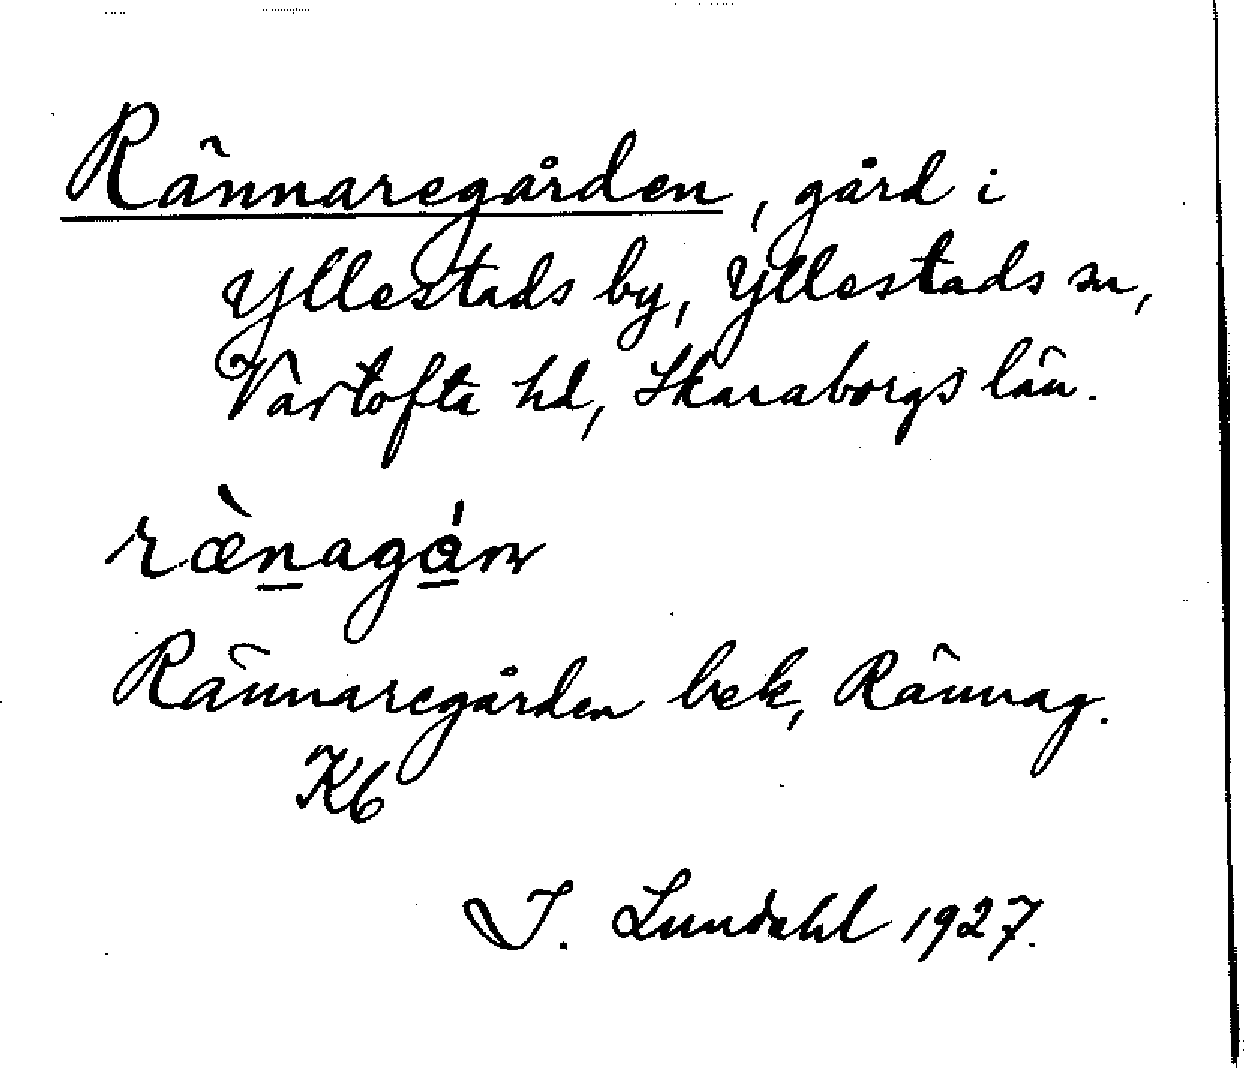 Rännaregården, gård i
Yllestads by, Yllestads sn,
Vartofta hd, Skaraborgs län.
ræ̀nagán
Rännaregården bek, Rännag.
Kb
I. Lundahl 1927.